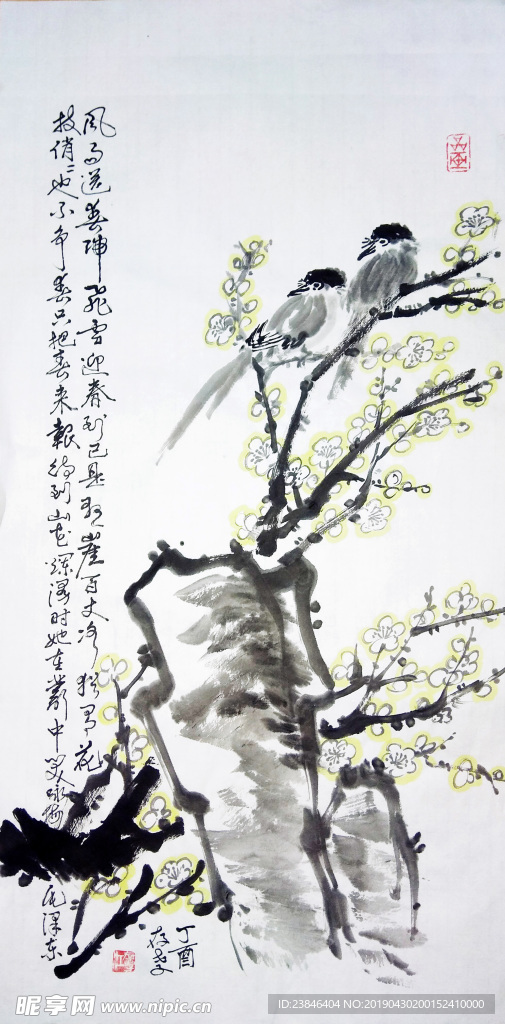 風雨送春歸飛雪迎春到已是懸崖百丈冰猶有花
枝俏俏也不争春只把春来報待到山花爛漫时她在叢中笑咏梅
毛澤东
丁酉
昵享网 www.nipic.cn
ID:23846404 NO:20190430200152410000